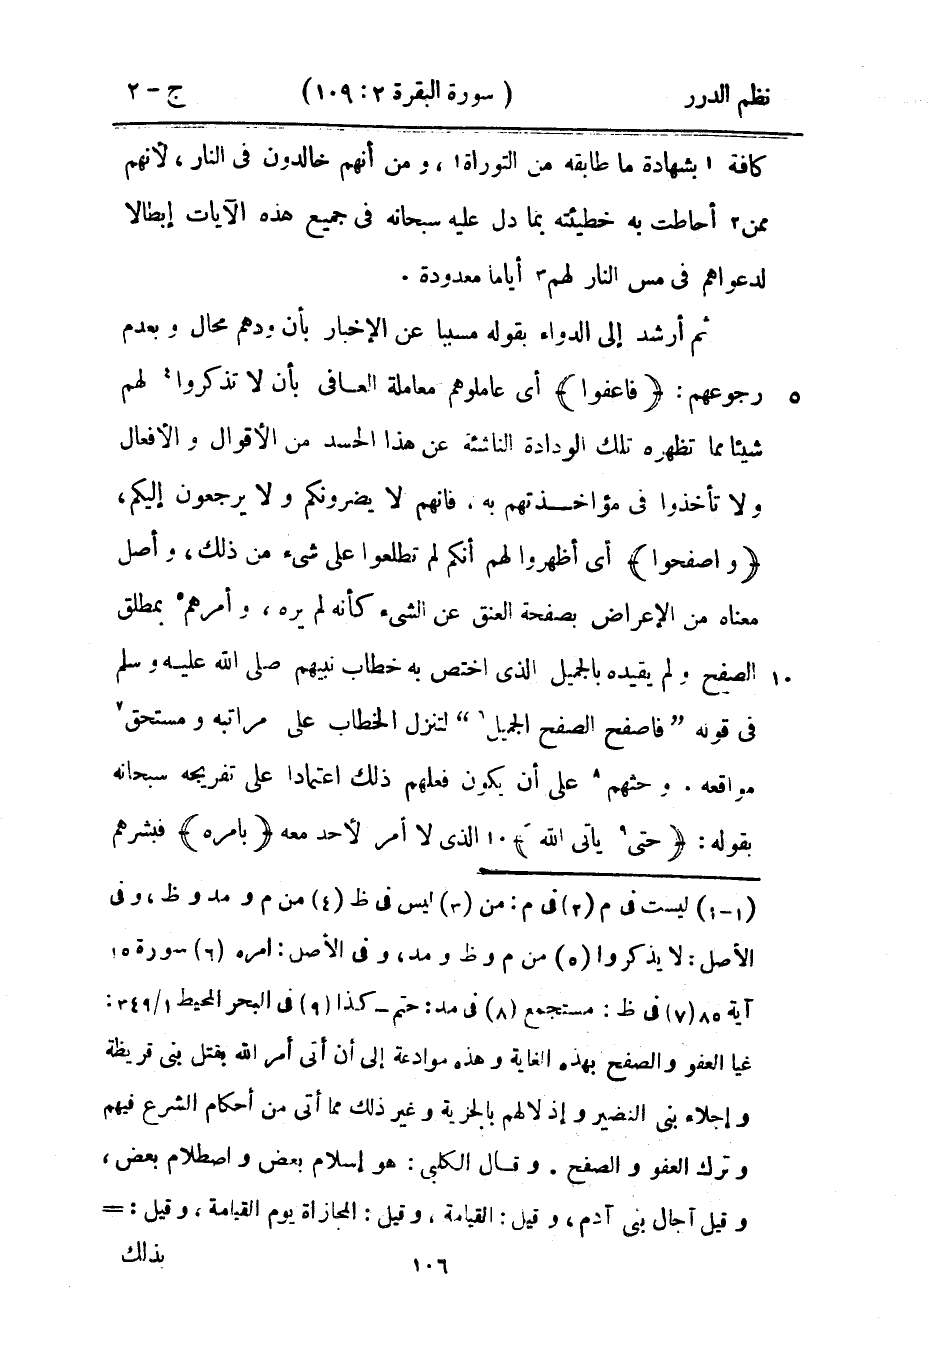 نظم الدرر ( سورة البقرة ٢ : ١٠٩ ) ج - ٢
كافة ١ بشهادة ما طابقه من التوراة١ ، و من أنهم خالدون فى النار ، لأنهم
ممن٢ أحاطت به خطيئته بما دل عليه سبحانه فى جميع هذه الآيات إبطالا
لدعواهم فى مس النار لهم٣ أياما معدودة .
ثم أرشد إلى الدواء بقوله مسببا عن الإخبار بأن ودهم محال و بعدم
٥ رجوعهم : ﴿ فاعفوا ﴾ أى عاملوهم معاملة العافى بأن لا تذكروا٤ لهم
شيئا مما تظهره تلك الودادة الناشئة عن هذا الحسد من الأقوال و الأفعال
و لا تأخذوا فى مؤاخذتهم به . فانهم لا يضرونكم و لا يرجعون إليكم ،
﴿ و اصفحوا ﴾ أى أظهروا لهم أنكم لم تطلعوا على شىء من ذلك ، و أصل
معناه من الإعراض بصفحة العنق عن الشىء كأنه لم يره ، و أمرهم٥ بمطلق
١٠ الصفح و لم يقيده بالجميل الذى اختص به خطاب نبيهم صلى الله عليه و سلم
فى قوله ” فاصفح الصفح الجميل٦ “ لتنزل الخطاب على مراتبه و مستحق٧
مواقعه . و حثهم ٨ على أن يكون فعلهم ذلك اعتمادا على تفريجه سبحانه
بقوله : ﴿ حتى٩ يأتى الله ﴾ ١٠ الذى لا أمر لأحد معه ﴿ بامره ﴾ فبشرهم
(١-١) ليست فى م (٢) فى م : من (٣) ليس فى ظ (٤) من م و مد و ظ ، و فى
الأصل : لا يذكروا (٥) من م و ظ و مد ، و فى الأصل : امره (٦) سورة ١٥
آية ٨٥ (٧) فى ظ : مستجمع (٨) فى مد : حتم ــ كذا (٩) فى البحر المحيط ١/٣٤٩ :
غيا العفو و الصفح بهذه الغاية و هذه موادعة إلى أن أتى أمر الله بقتل بنى قريظة
و إجلاء بنى النضير و إذلالهم بالجزية و غير ذلك مما أتى من أحكام الشرع فيهم
و ترك العفو و الصفح . و قال الكلبى : هو إسلام بعض و اصطلام بعض ،
و قيل آجال بنى آدم ، و قيل : القيامة ، و قيل : المجازاة يوم القيامة ، و قيل : =
١٠٦ بذلك